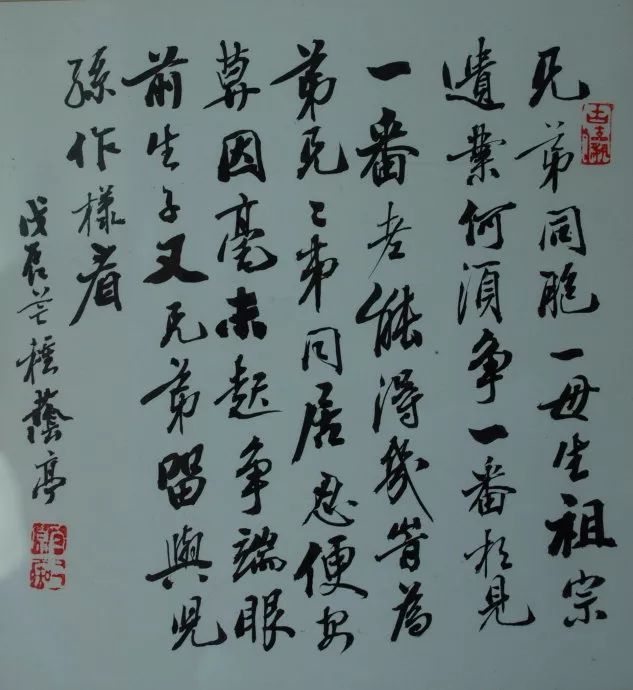 兄弟同胞一母生祖宗
遺業何須争一番相見
一番老能得幾旹為
弟兄〻弟同居忍便安
莫因毫末起争端眼
前生子又兄弟留與兒
孫作樣看
戊辰芒種亭